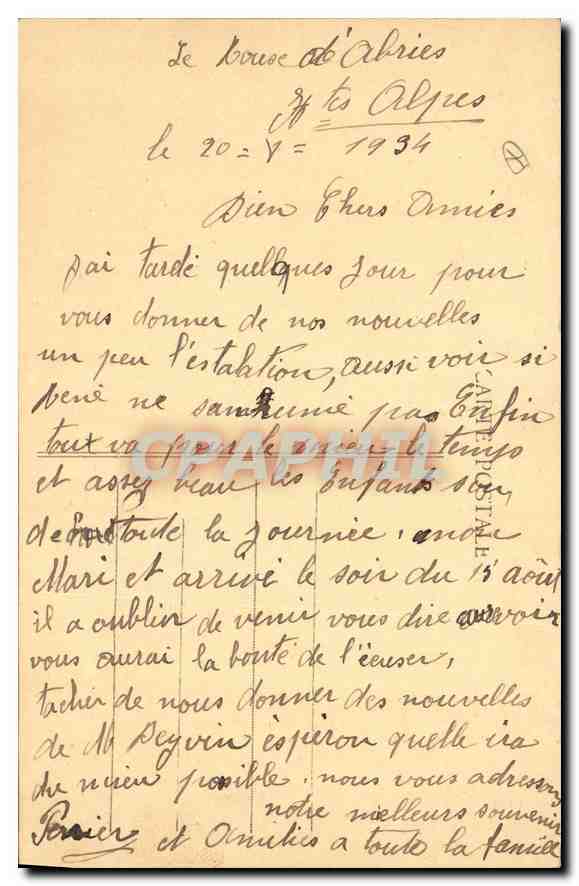 Le Roux d'Abries
Htes Alpes
le 20 = V = 1934
Bien Chers Amies
J'ai tardé quelques Jour pour
vous donner de nos nouvelles
un peu l'estalation, aussi voir si
René ne pas Enfin
tout va pour le mieu le temps
et assez beau les Enfants son
de toute la Journée, mon
Mari et arrivé le soir du 15 août
il a oublier de venir vous dire aurvoir
vous aurai la bonté de l'éxuser,
tacher de nous donner des nouvelles
de M Peyvin éspéron quelle ira
du mieu possible. nous vous adressons
notre meilleurs souvenir
Perrier et Amitiés a toute la famille
CARTE POSTALE
CPARAMA.COM